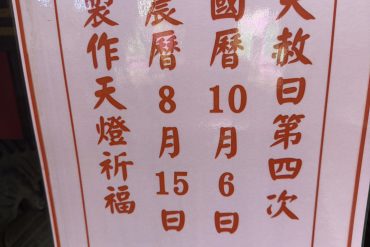 天赦日第四次
國曆10月6日
農曆8月15日
製作天燈祈福